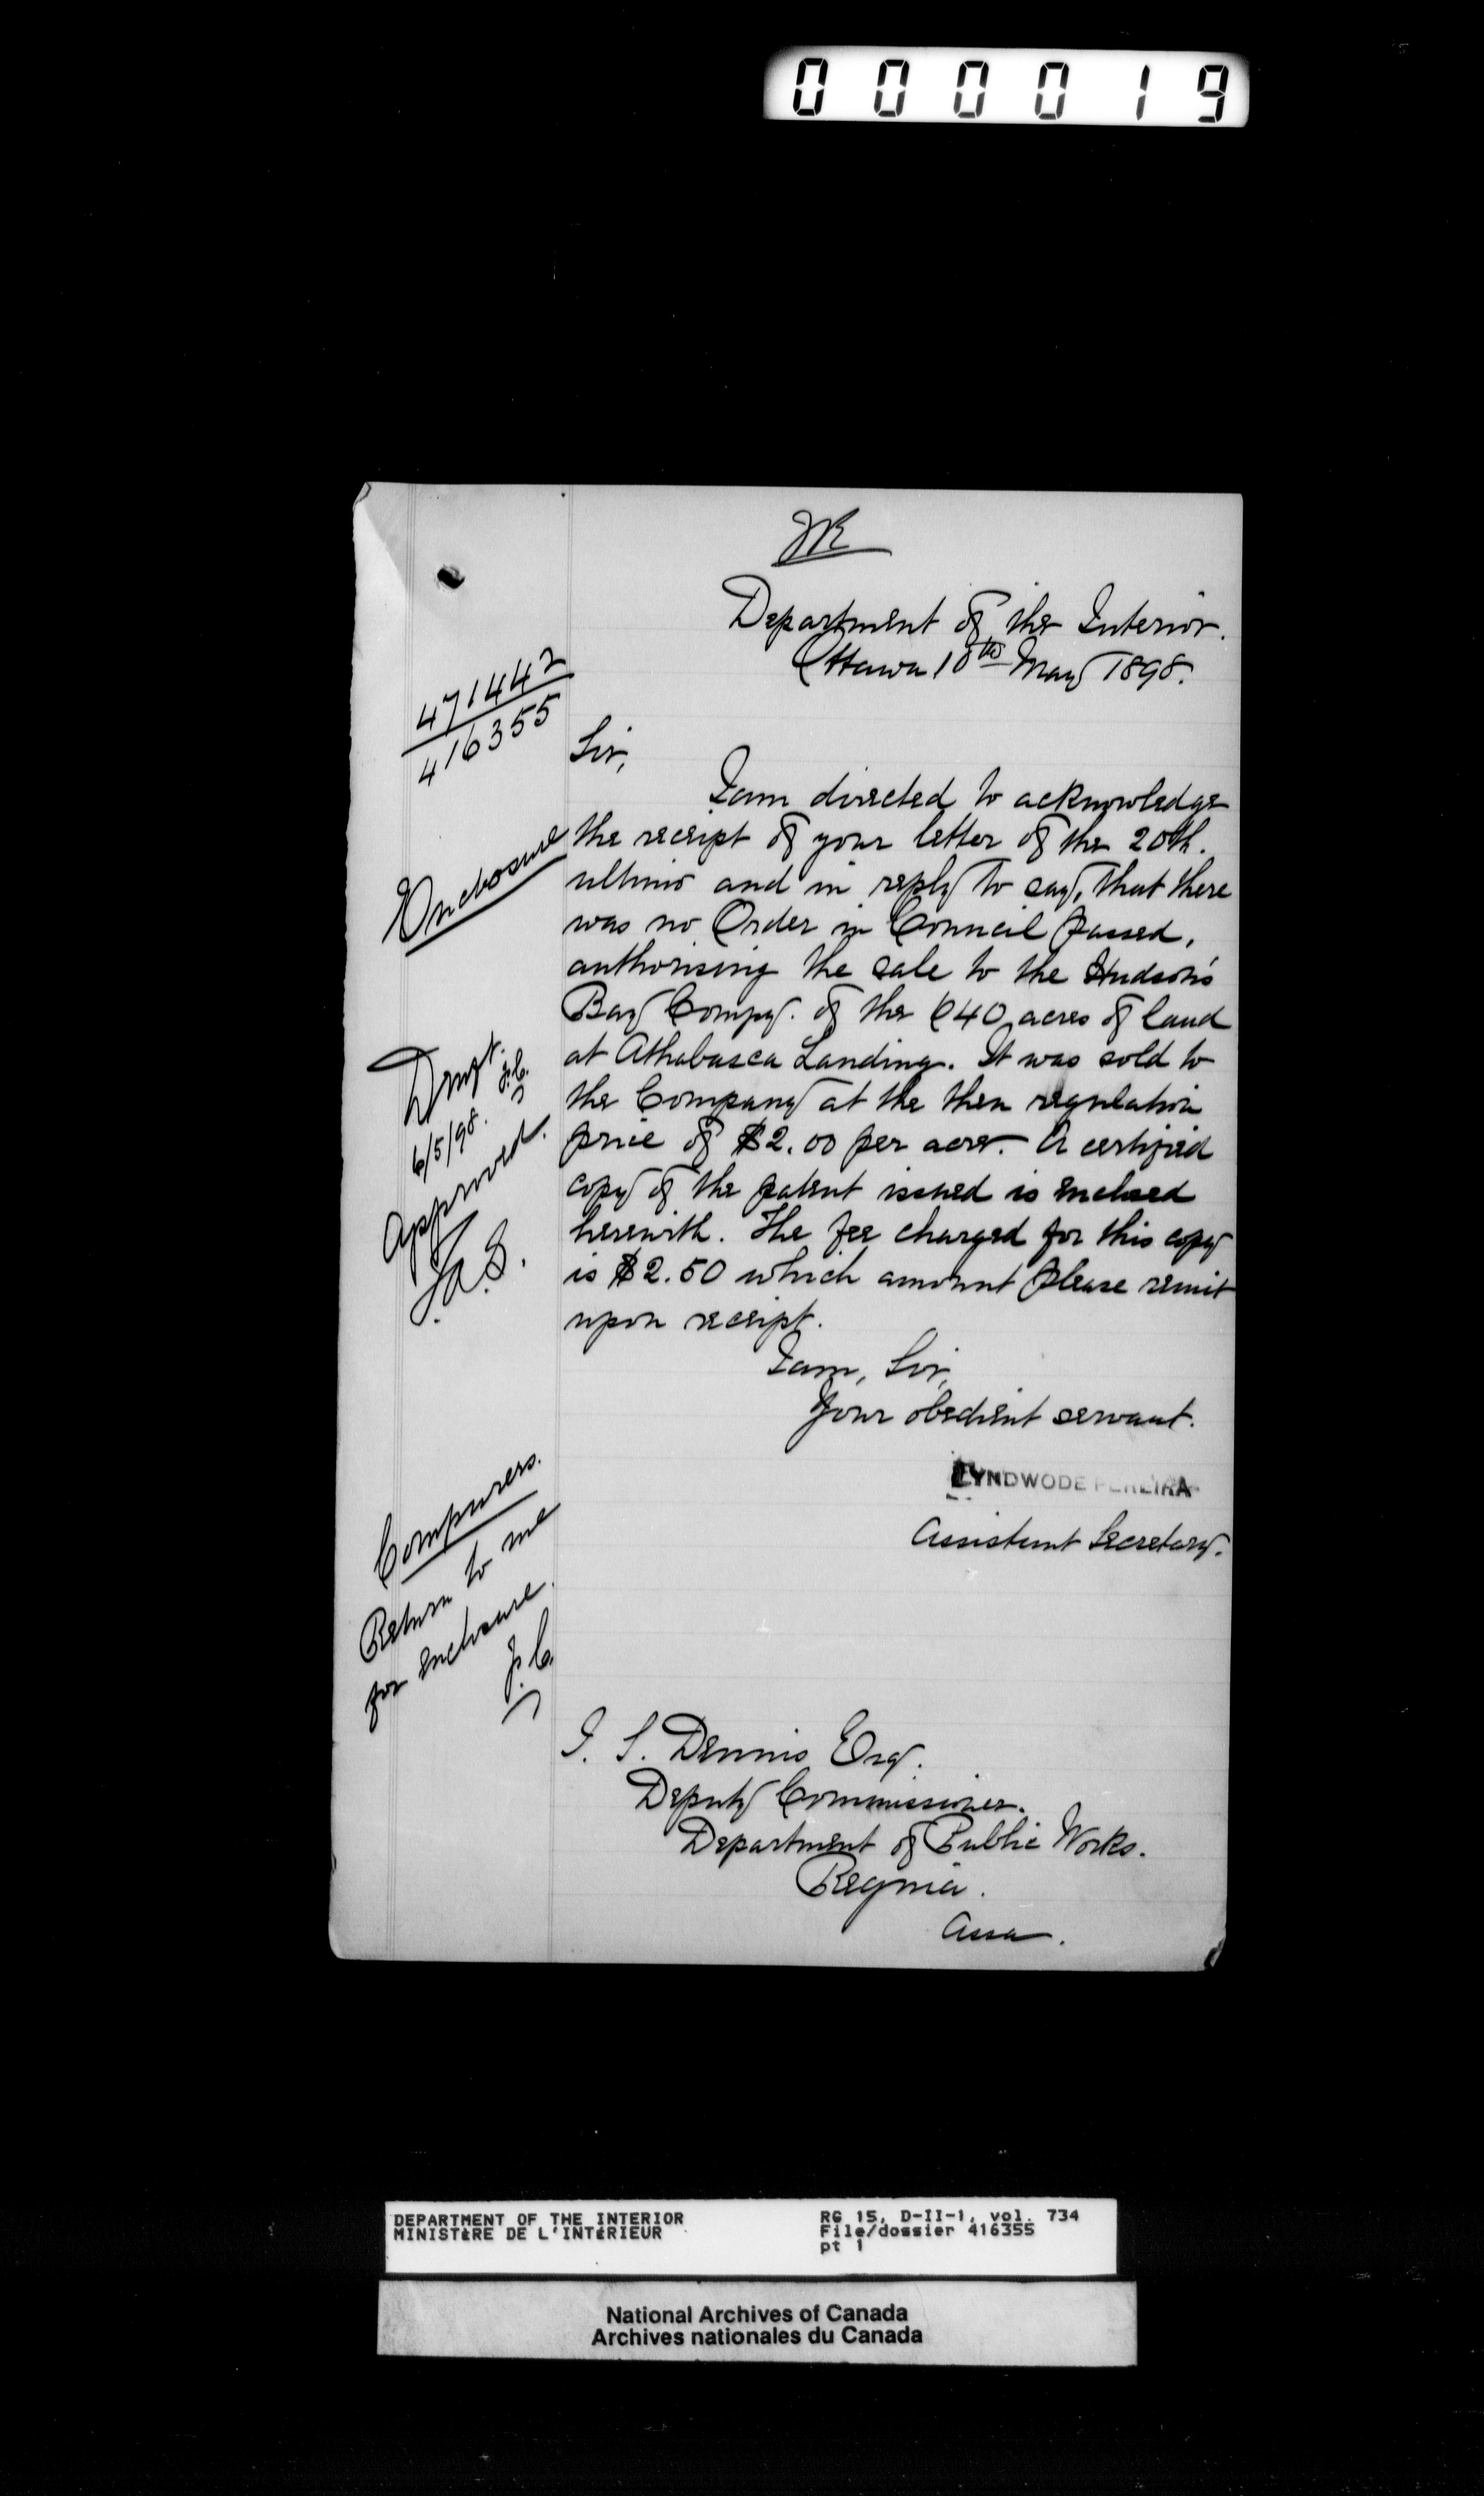 000019
JR
Department of the Interior.
Ottawa 10th May 1898.
471442
416355
Sir,
I am directed to acknowledge
the receipt of your letter of the 20th.
Enclosure
ultimo and in reply to say, that there
was no Order in Council passed,
authorising the sale to the Hudson's
Bay Compy. of the 640 acres of land
at Athabasca Landing. It was sold to
the Company at the then regulation
price of $2.00 per acre. A certified
copy of the patent issued is enclosed
herewith. The fee charged for this copy
is $2.50 which amount please remit
upon receipt.
Draft. J.C.
6/5/98.
Approved.
J.A.S.
I am, Sir,
Your obedient servant.
LYNDWODE PEREIRA
Assistant Secretary.
Comparers.
Return to me
for enclosure.
J.C.
J. S. Dennis Esq.
Deputy Commissioner.
Department of Public Works.
Regina.
Assa.
DEPARTMENT OF THE INTERIOR
MINISTÈRE DE L'INTÉRIEUR
RG 15, D-II-1, vol. 734
File/dossier 416355
pt 1
National Archives of Canada
Archives nationales du Canada